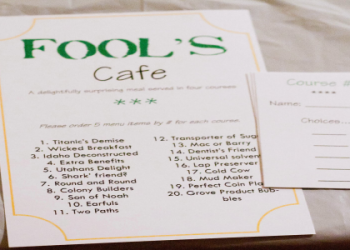 FOOL'S
Cafe
A delightfully surprising meal served in four courses
***
Please order 5 menu items by # for each course.
1. Titanic's Demise
2. Wicked Breakfast
3. Idaho Deconstructed
4. Extra Benefits
5. Utahans Delight
6. Shark' friend?
7. Round and Round
8. Colony Builders
9. Son of Noah
10. Earfuls
11. Two Paths
12. Transporter of Sug
13. Mac or Barry
14. Dentist's Friend
15. Universal solven
16. Lap Preserver
17. Cold Cow
18. Mud Maker
19. Perfect Coin Pla
20. Grove Product Bub-
bles
Course #
****
Name:
Choices: